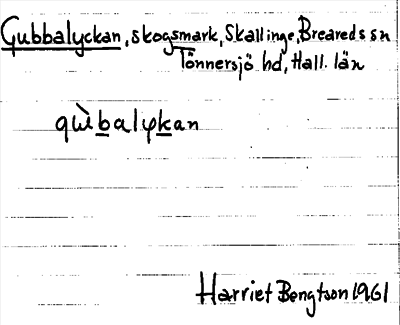 Gubbalyckan, skogsmark, Skallinge, Breareds sn
Tönnersjö hd, Hall. län
gùbalykan
Harriet Bengtson 1961